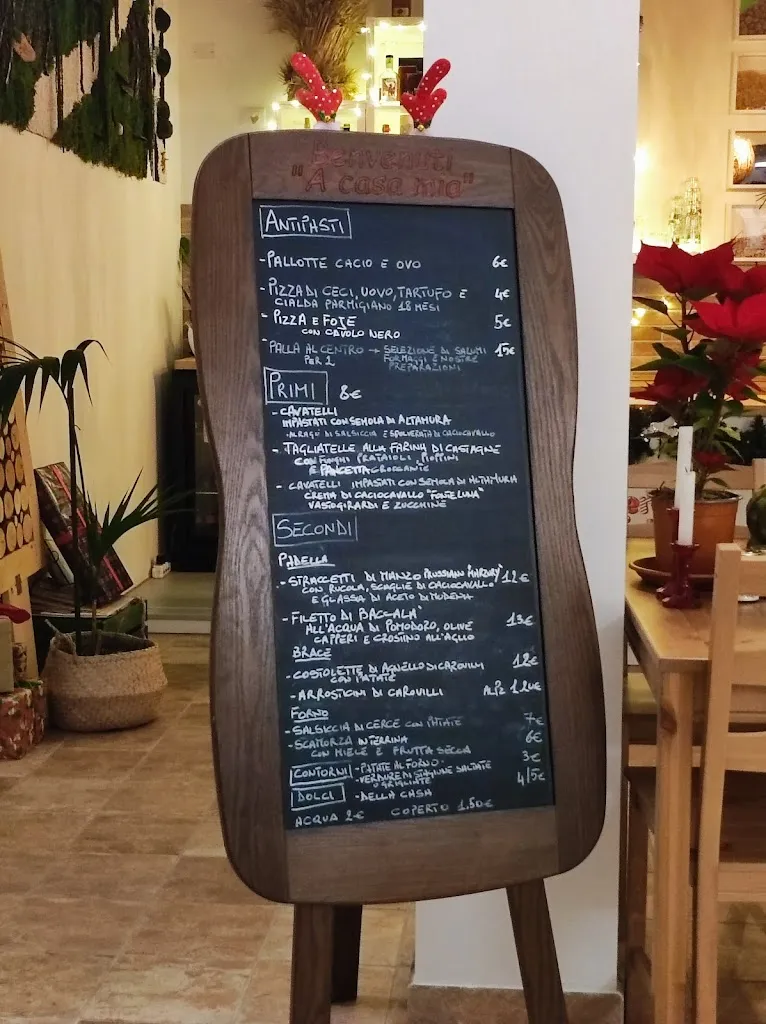 Benvenuti
"A casa mia"
ANTIPASTI
- PALLOTTE CACIO E OVO 6€
- PIZZA DI CECI, UOVO, TARTUFO E 4€
CIALDA PARMIGIANO 18 MESI
- PIZZA E FOJE 5€
CON CAVOLO NERO
- PALLA AL CENTRO → SELEZIONE DI SALUMI 15€
PER 2 FORMAGGI E NOSTRE
PREPARAZIONI
PRIMI 8€
- CAVATELLI
IMPASTATI CON SEMOLA DI ALTAMURA
AL RAGÙ DI SALSICCIA E SPOLVERATA DI CACIOCAVALLO
- TAGLIATELLE ALLA FARINA DI CASTAGNE
CON FUNGHI PRATAIOLI, PIOPPINI
E PANCETTA CROCCANTE
- CAVATELLI IMPASTATI CON SEMOLA DI ALTAMURA
CREMA DI CACIOCAVALLO "FONTE LUNA"
VASTOGIRARDI E ZUCCHINE
SECONDI
PADELLA
- STRACCETTI DI MANZO PRUSSIAN 12€
CON RUCOLA, SCAGLIE DI CACIOCAVALLO
E GLASSA DI ACETO DI MODENA
- FILETTO DI BACCALA' 13€
ALL'ACQUA DI POMODORO, OLIVE
CAPPERI E CROSTINO ALL'AGLIO
BRACE
- COSTOLETTE DI AGNELLO DI CAROVILLI 12€
CON PATATE
- ARROSTICINI DI CAROVILLI AL PZ 1,20€
FORNO
- SALSICCIA DI CERCE CON PATATE 7€
- SCATTORZA IN TERRINA 6€
CON MIELE E FRUTTA SECCA
CONTORNI - PATATE AL FORNO 3€
- VERDURE DI STAGIONE SALTATE
O GRIGLIATE
DOLCI - DELLA CASA 4/5€
ACQUA 2€ COPERTO 1.50€